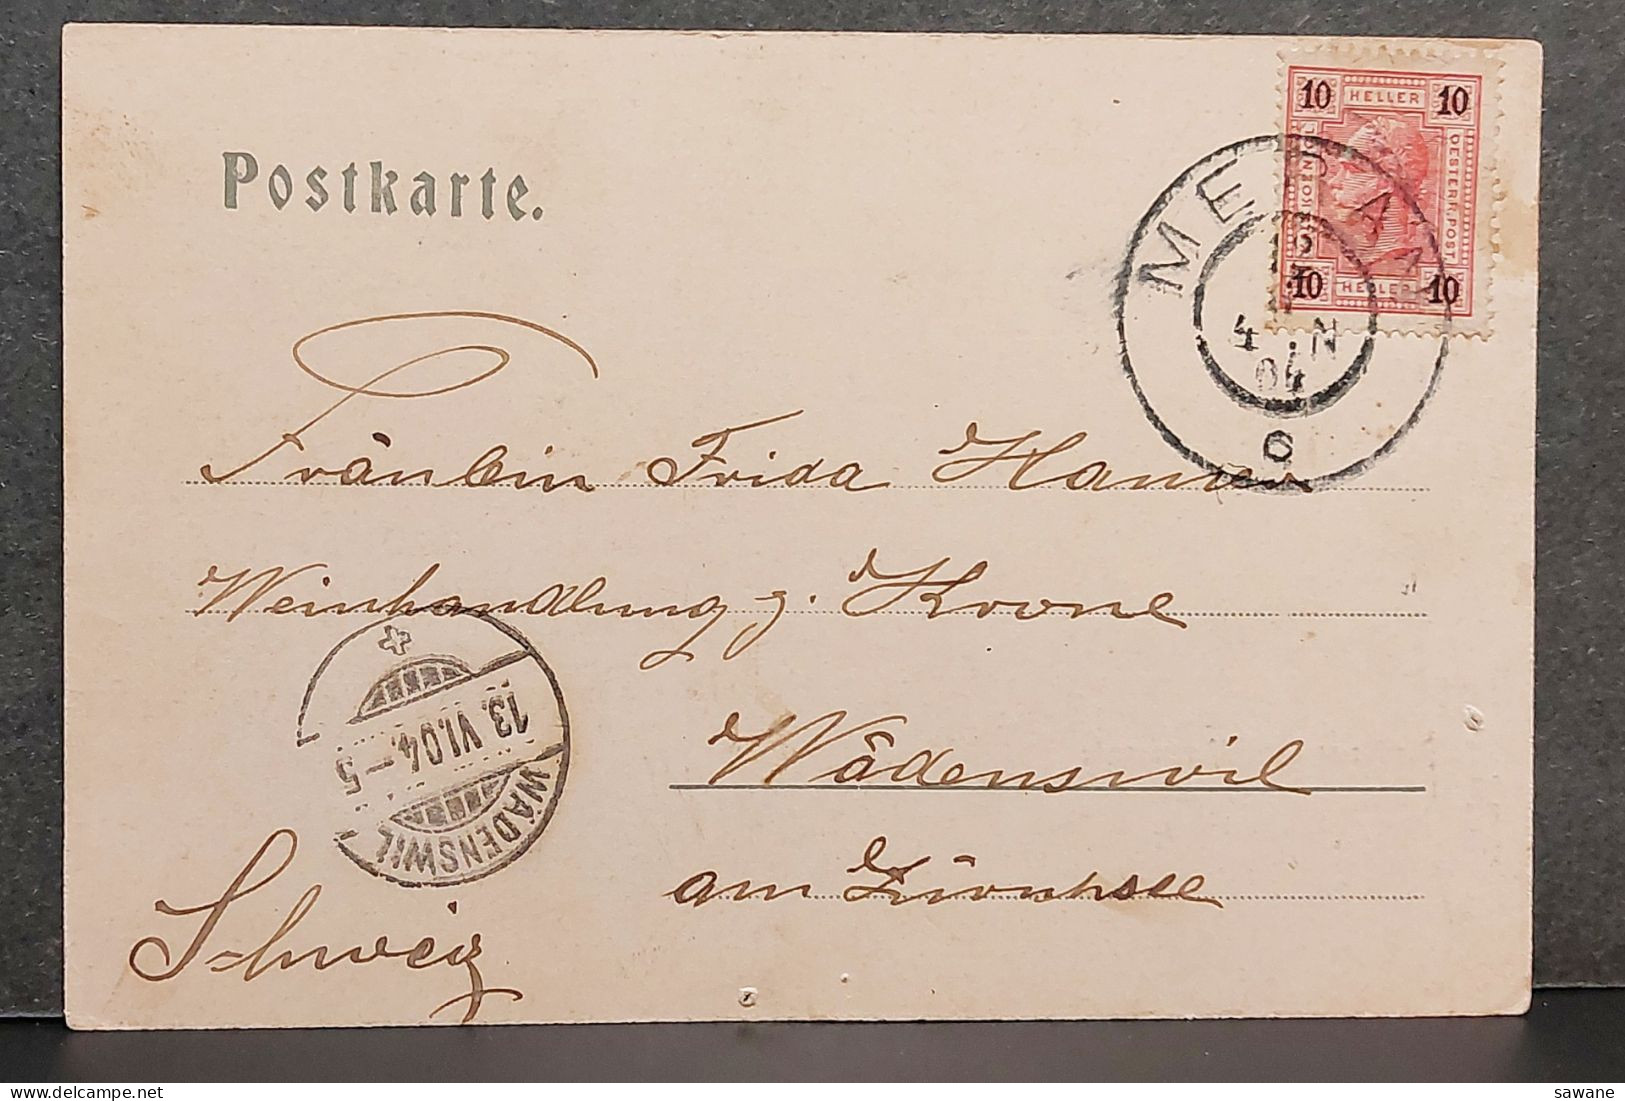 Postkarte.
10 HELLER 10
OESTERR.POST
10 HELLER 10
MERAN
4 N
04
c
Fräulein Frida Hauser
Weinhandlung z. Krone
Wädenswil
am Zürichsee
Schweiz
13.VI.04.-5
WÄDENSWIL
sawane